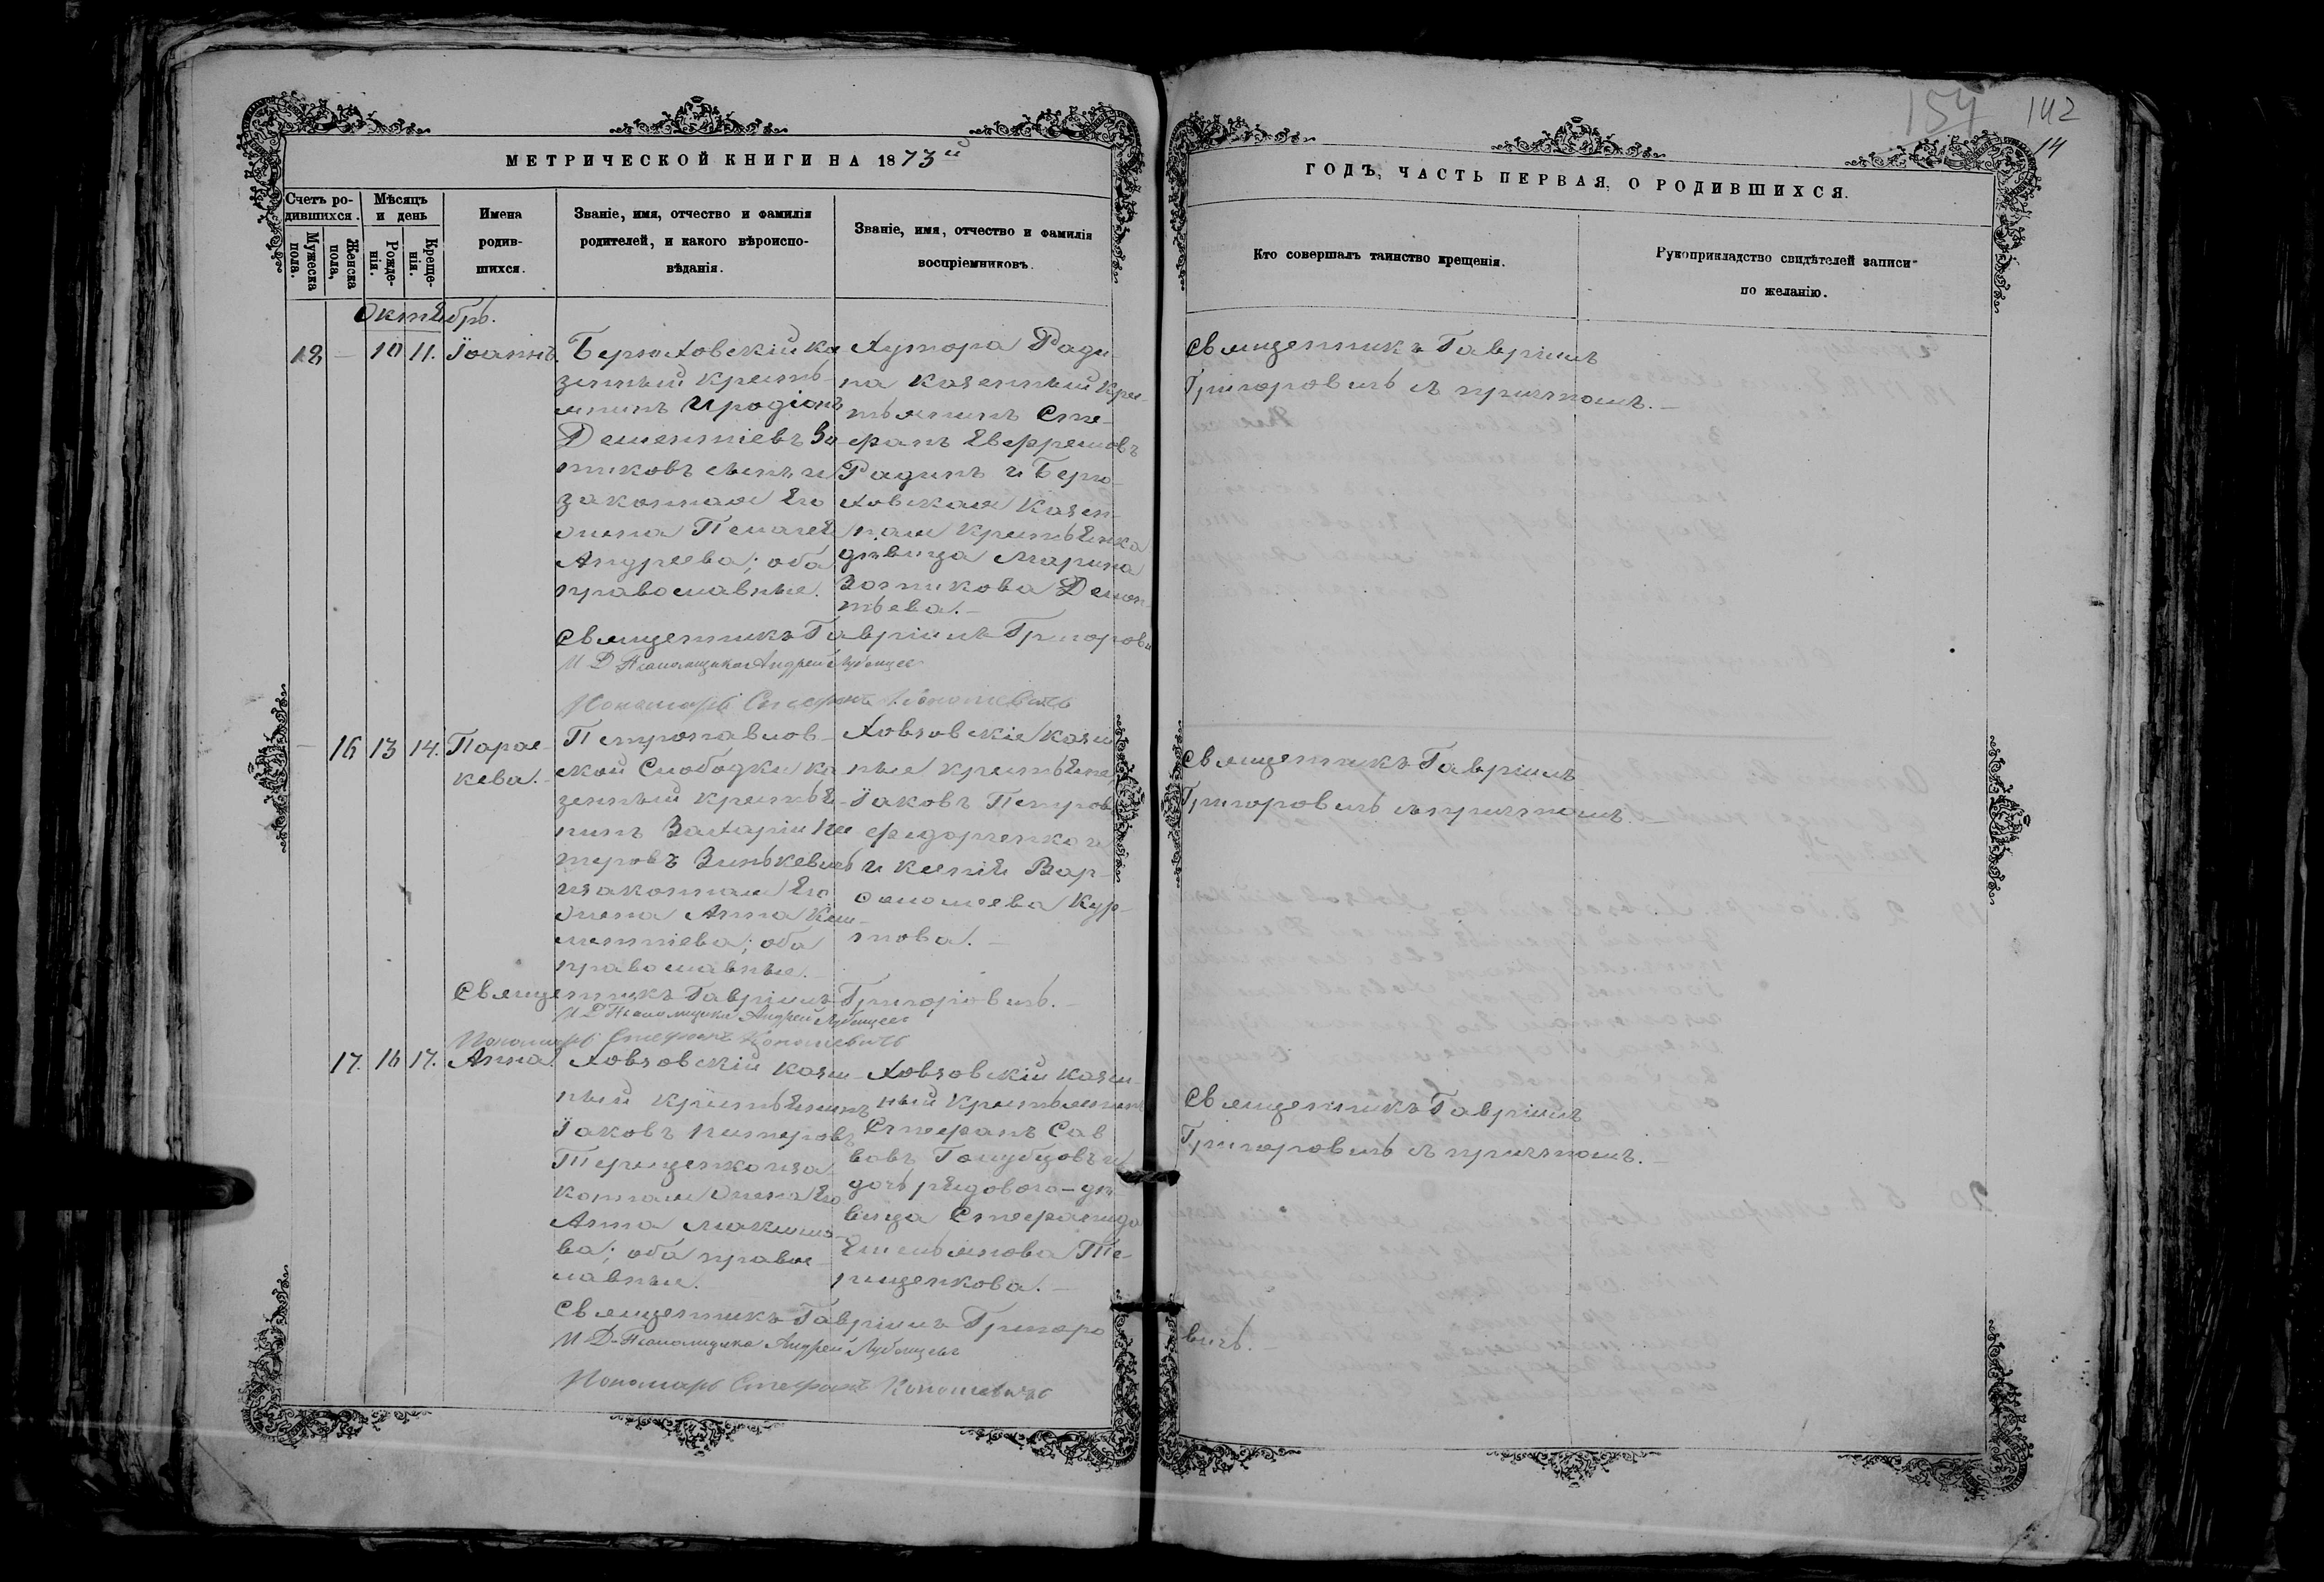 154 142
14
МЕТРИЧЕСКОЙ КНИГИ НА 1873й
ГОДЪ, ЧАСТЬ ПЕРВАЯ, О РОДИВШИХСЯ.
Счетъ ро-
дившихся.
Мужеска
пола.
Женска
пола,
Мѣсяцъ
и день
Рожде-
нія.
Креще-
нія.
Имена
родив-
шихся.
Званіе, имя, отчество и фамилія
родителей, и какого вѣроиспо-
вѣданія.
Званіе, имя, отчество и фамилія
воспріемниковъ.
Кто совершалъ таинство крещенія.
Рукоприкладство свидѣтелей записи
по желанію.
Октябрь.
18 — 10 11. Іоаннъ.
Берюховскій ка
зенный кресть-
янинъ Иродіонъ
Дементіевъ Зо-
тиковъ сынъ и
законная Его
жена Пелагея
Андреева; оба
православные.
Хутора Ради-
на казенный кре-
стьянинъ Сте-
фанъ Евфремовъ
Радинъ и Берю-
ховская Казен-
ная крестьянка
дѣвица Марина
Зотикова Демен-
тьева.—
Священникъ Гавріилъ
Григоровичъ съ причтомъ.—
Священникъ Гавріилъ Григорови
И Д Псаломщика Андрей
Пономарь Стефанъ
— 16 13 14. Парас-
кева.
Петропавлов-
ской Слободки ка
зенный крестья-
нинъ Захарій Не
стеровъ Зинькевичъ
и законная Его
жена Анна Кли-
ментіева; оба
православные.—
Ховзовскіе казен
ные крестьяне
Іаковъ Петровъ
Федорченко и
и Ксенія Вар-
оломеева Кур-
нова.—
Священникъ Гавріилъ
Григоровичъ съ причтомъ.—
Священникъ Гавріилъ Григоровичъ.—
И Д Псаломщика Андрей
Пономарь Стефанъ
17. 16 17. Анна.
Ховзовскій казен
ный крестьянинъ
Іаковъ Несторовъ
Терещенко и за
конная жена Его
Анна Максимо-
ва; оба правос-
лавные.
Ховзовскій казен-
ный крестьянинъ
Стефанъ Сав
вовъ Голубцовъ и
дочь рядового—дѣ-
вица Стефанида
Емельянова Те-
рещенкова.—
Священникъ Гавріилъ
Григоровичъ съ причтомъ.—
Священникъ Гавріилъ Григоро
вичъ.—
И Д Псаломщика Андрей
Пономарь Стефанъ